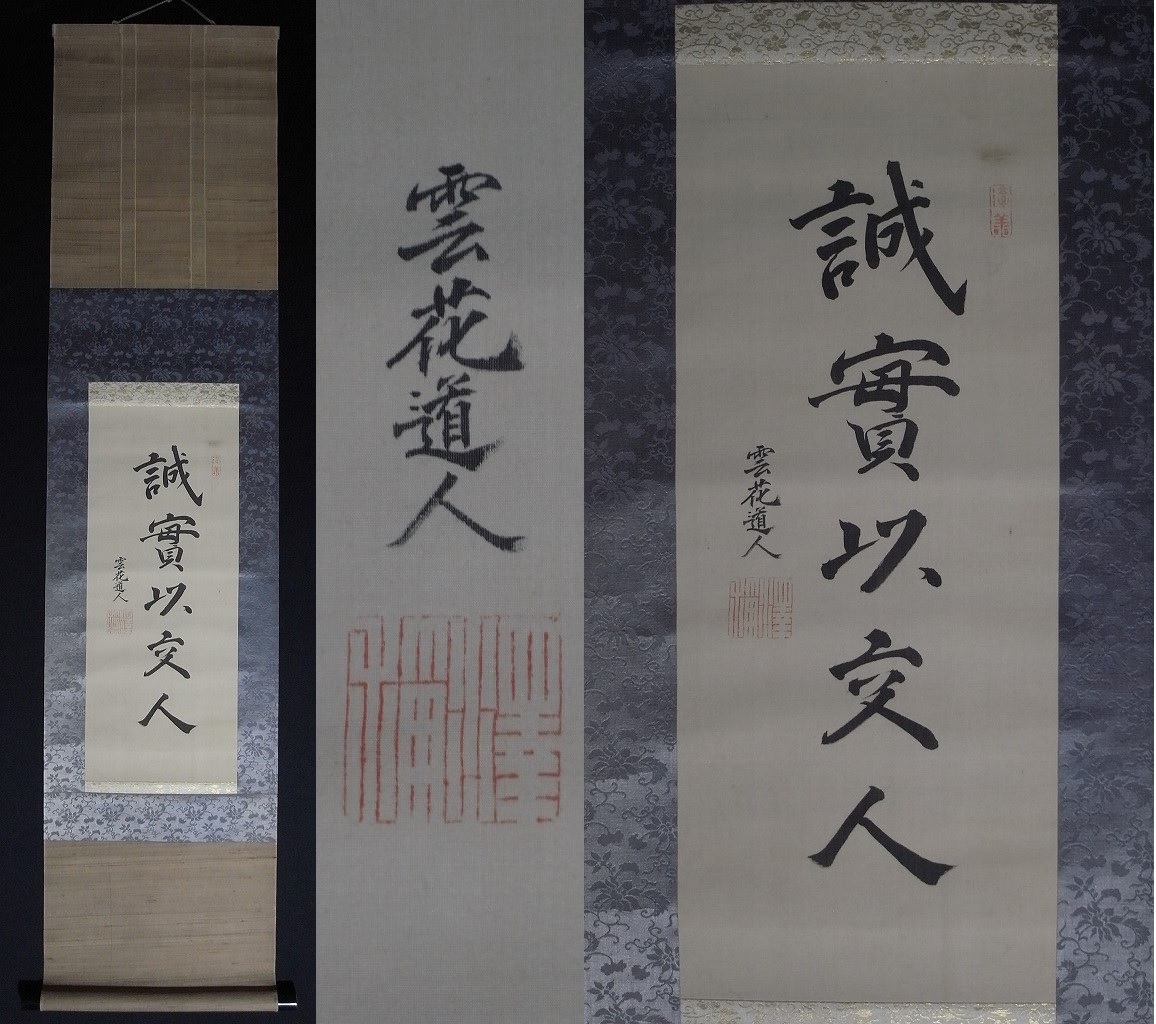 誠實以交人
雲花道人
雲花道人
誠實以交人
雲花道人